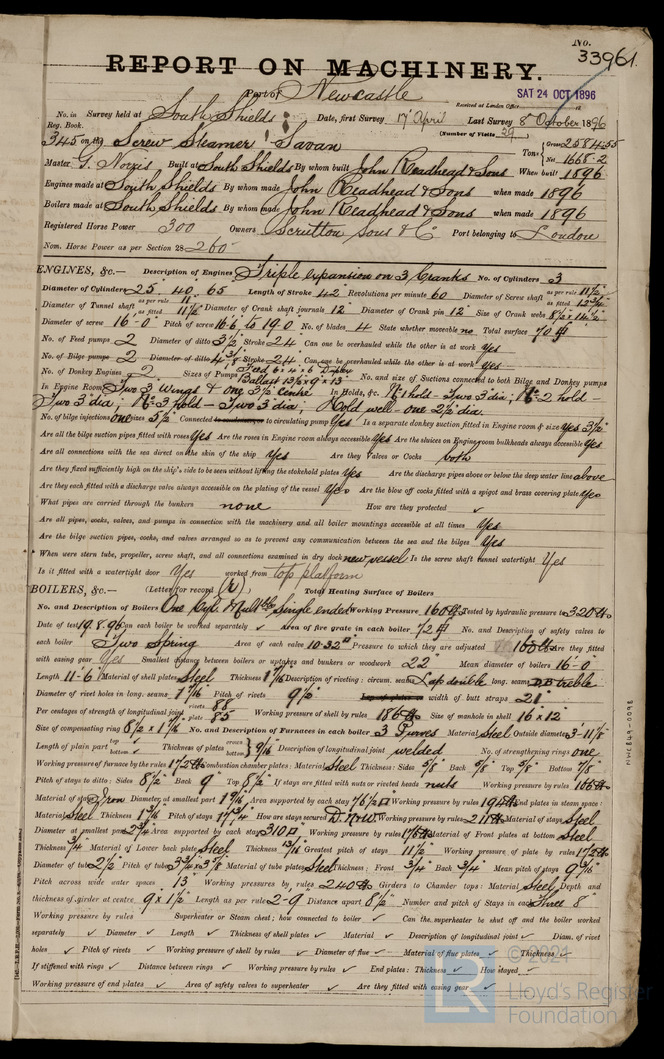 No. 33961.
REPORT ON MACHINERY.
Port of Newcastle
Received at London Office SAT 24 OCT 1896
No. in Reg. Book. Survey held at South Shields Date, first Survey 17 April Last Survey 8 October 1896
(Number of Visits 29)
345 on the Screw Steamer Savan Tons Gross 2584.55 Net 1668.2
Master G. Norris Built at South Shields By whom built John Readhead & Sons When built 1896
Engines made at South Shields By whom made John Readhead & Sons when made 1896
Boilers made at South Shields By whom made John Readhead & Sons when made 1896
Registered Horse Power 300 Owners Scrutton Sons & Co Port belonging to London
Nom. Horse Power as per Section 28 260
ENGINES, &c.— Description of Engines Triple expansion on 3 Cranks No. of Cylinders 3
Diameter of Cylinders 25" 40" 65 Length of Stroke 42" Revolutions per minute 60 Diameter of Screw shaft as per rule 11 1/2" as fitted
Diameter of Tunnel shaft as per rule 11" as fitted Diameter of Crank shaft journals 12 Diameter of Crank pin 12" Size of Crank webs
Diameter of screw 16'-0" Pitch of screw 16.6 to 19.0 No. of blades 4 State whether moveable no Total surface 70
No. of Feed pumps 2 Diameter of ditto 3 1/2" Stroke 24 Can one be overhauled while the other is at work yes
No. of Bilge pumps 2 Diameter of ditto Stroke 24 Can one be overhauled while the other is at work yes
No. of Donkey Engines 2 Sizes of Pumps Feed 6 x 4 x 6 Duplex Ballast No. and size of Suctions connected to both Bilge and Donkey pumps
In Engine Room Two 3 Wings & one 3 1/2 centre In Holds, &c. No 1 hold - Two 3" dia; No 2 hold -
Two 3" dia; No 3 hold - Two 3" dia; Hold well - one 2 1/2 dia.
No. of bilge injections one sizes 5 1/2 Connected to circulating pump Yes Is a separate donkey suction fitted in Engine room & size yes 3 1/2"
Are all the bilge suction pipes fitted with roses Yes Are the roses in Engine room always accessible Yes Are the sluices on Engine room bulkheads always accessible Yes
Are all connections with the sea direct on the skin of the ship Yes Are they Valves or Cocks both
Are they fixed sufficiently high on the ship's side to be seen without lifting the stokehold plates Yes Are the discharge pipes above or below the deep water line above
Are they each fitted with a discharge valve always accessible on the plating of the vessel Yes Are the blow off cocks fitted with a spigot and brass covering plate Yes
What pipes are carried through the bunkers none How are they protected ✓
Are all pipes, cocks, valves, and pumps in connection with the machinery and all boiler mountings accessible at all times Yes
Are the bilge suction pipes, cocks, and valves arranged so as to prevent any communication between the sea and the bilges Yes
When were stern tube, propeller, screw shaft, and all connections examined in dry dock new vessel Is the screw shaft tunnel watertight Yes
Is it fitted with a watertight door Yes worked from top platform
BOILERS, &c.— (Letter for record (r)) Total Heating Surface of Boilers
No. and Description of Boilers One Cyl. Multle Single ended Working Pressure 160 lbs Tested by hydraulic pressure to 320 lbs
Date of test 19.8.96 Can each boiler be worked separately ✓ Area of fire grate in each boiler 72 No. and Description of safety valves to
each boiler Two Spring Area of each valve 10.32 Pressure to which they are adjusted 160 lbs Are they fitted
with easing gear Yes Smallest distance between boilers or uptakes and bunkers or woodwork 22" Mean diameter of boilers 16-0
Length 11-6" Material of shell plates Steel Thickness Description of riveting: circum. seams Lap double long. seams D.B treble
Diameter of rivet holes in long. seams Pitch of rivets 9 1/2 Lap of plates or width of butt straps 21"
Per centages of strength of longitudinal joint rivets 88 plate 85 Working pressure of shell by rules 186 lbs Size of manhole in shell 16 x 12"
Size of compensating ring No. and Description of Furnaces in each boiler 3 Purves Material Steel Outside diameter 3'-11 1/8
Length of plain part top ✓ bottom ✓ Thickness of plates crown bottom 9/16 Description of longitudinal joint welded No. of strengthening rings one
Working pressure of furnace by the rules 172 lbs Combustion chamber plates: Material Steel Thickness: Sides 5/8 Back 5/8 Top 5/8 Bottom 7/8
Pitch of stays to ditto: Sides 8 1/2 Back 9" Top 8 1/2 If stays are fitted with nuts or riveted heads nuts Working pressure by rules 166 lbs
Material of stays Iron Diameter at smallest part Area supported by each stay 76 1/2 Working pressure by rules 194 lbs End plates in steam space:
Material Steel Thickness Pitch of stays How are stays secured D.N.&W. Working pressure by rules 211 lbs Material of stays Steel
Diameter at smallest part 2 3/4 Area supported by each stay 310 Working pressure by rules 176 lbs Material of Front plates at bottom Steel
Thickness 3/4" Material of Lower back plate Steel Thickness 13/16 Greatest pitch of stays 11 1/2" Working pressure of plate by rules 172 lbs
Diameter of tubes 2 1/2 Pitch of tubes Material of tube plates Steel Thickness: Front 3/4" Back 3/4" Mean pitch of stays 9 3/16
Pitch across wide water spaces 13" Working pressures by rules 240 lbs Girders to Chamber tops: Material Steel Depth and
thickness of girder at centre 9 x 1 1/2" Length as per rule 2-9 Distance apart 8 1/2" Number and pitch of Stays in each Three 8"
Working pressure by rules Superheater or Steam chest; how connected to boiler ✓ Can the superheater be shut off and the boiler worked
separately ✓ Diameter ✓ Length ✓ Thickness of shell plates ✓ Material ✓ Description of longitudinal joint ✓ Diam. of rivet
holes ✓ Pitch of rivets ✓ Working pressure of shell by rules ✓ Diameter of flue ✓ Material of flue plates ✓ Thickness ✓
If stiffened with rings ✓ Distance between rings ✓ Working pressure by rules ✓ End plates: Thickness ✓ How stayed ✓
Working pressure of end plates ✓ Area of safety valves to superheater ✓ Are they fitted with easing gear ✓
© 2021
Lloyd's Register
Foundation